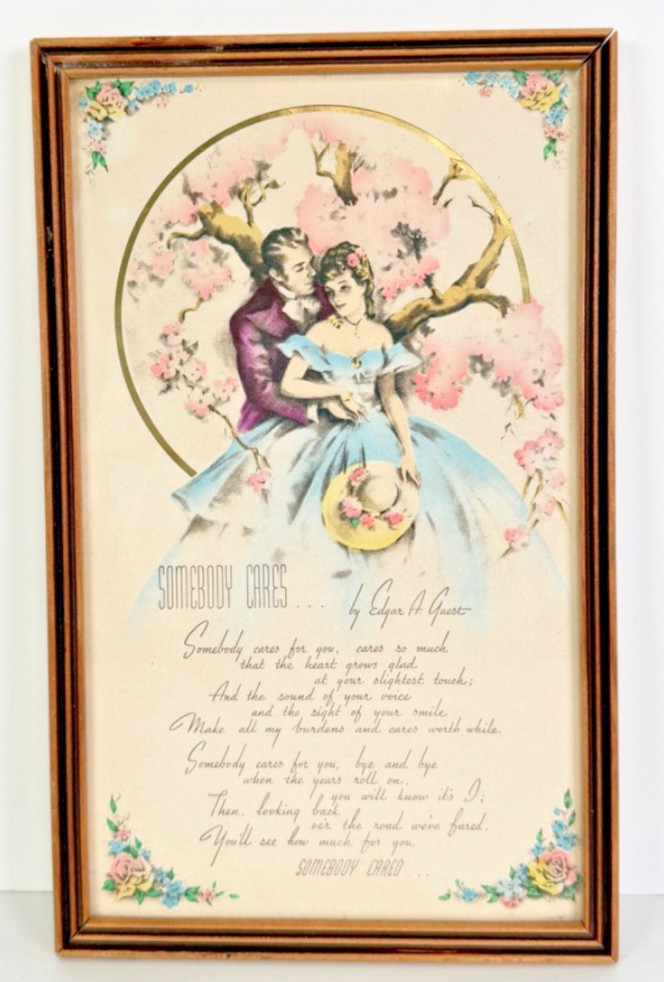 SOMEBODY CARES . . . by Edgar A. Guest
Somebody cares for you, cares so much
that the heart grows glad
at your slightest touch;
And the sound of your voice
and the sight of your smile
Make all my burdens and cares worth while.
Somebody cares for you, bye and bye
when the years roll on,
you will know it's I;
Then, looking back
o'er the road we've fared,
You'll see how much for you
SOMEBODY CARED . . .